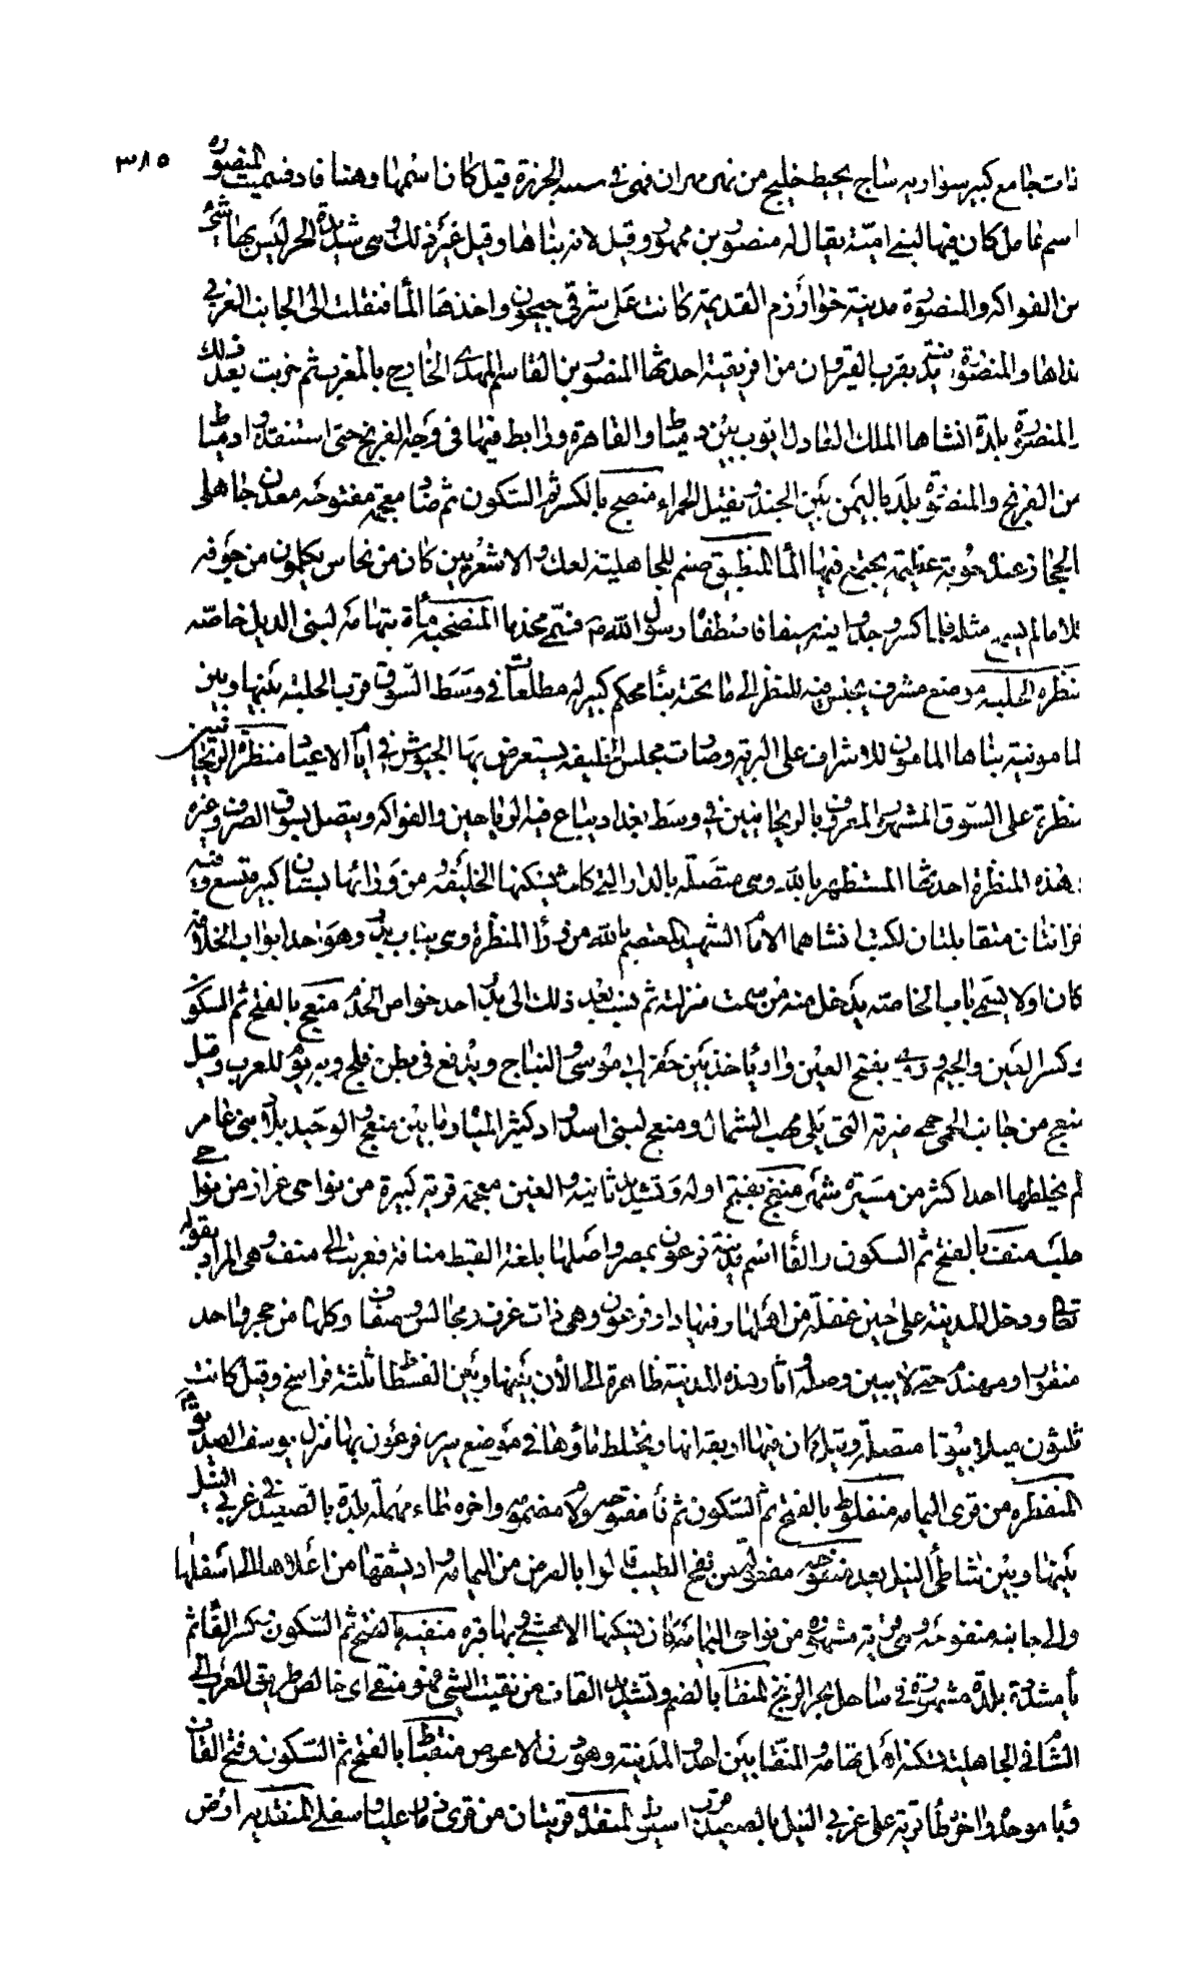 ٣٨٥
ذات جامع كبير سواريه ساج يحيط خليج من نهر مهران فهى فى الجزيرة قيل كان اسمها وهناباد فسميت المنصوره
اسم عامل كان فيها لبنى امية يقال له منصور بن جمهور وقيل لانه بناها وقيل غير ذلك وهى شديدة الحر ليس بها شئ
من الفواكه والمنصورة مدينة خوارزم القديمة كانت على شرقى جيحون واخذها الما فنقلت الى الجانب الغربى
بقرب القيروان من افريقية احدثها المنصور بن القاسم المهدى الخارج بالمغرب ثم خربت بعد ذلك
المنصورة بلدة انشاها الملك العادل ايوب بين دمياط والقاهرة ورابط فيها فى وجه الفرنج حتى استنقذوا دمياط
من الفرنج والمنصورة بلد باليمن بين الجند ونقيل الحمراء منضح بالكسر ثم السكون ثم ضاد معجمة مفتوحه معدن جاهلى
بالحجاز عنده جوبة عظيمة يجتمع فيها الما المنطبق صنم للجاهلية لعك والاشعريين كان من نحاس يكلمون من جوفه
كلاما لم يسمع مثله فلما كسر وجدوا فيه سيفا فاصطفاه رسول الله فسمى مخذما المنضحية ماة بتهامه لبنى الديل خاصه
منظره الحلبه موضع مشرف يجلس فيه للنظر الى ما تحته بنا محكم كبير له مطلعات فى وسط السوق قرب الحلبة بينها وبين
المامونية بناها المامون للاشراف على البرية وصارت مجلس الخليفه يستعرض بها الجيوش فى ايام الاعياد منظرة الريحانيين
منظرة على السوق المشهور المعروف بالريحانيين فى وسط بغداد يباع فيه الرياحين والفواكه ويتصل بسوق الصرف وغيره
هذه المنظرة احدثها المستظهر بالله وهى متصلة بالدار التى كانت يسكنها الخليفة ومن ورائها بستان كبير متسع وفيه
خزانتان متقابلتان لكتب انشاهما الامام الشهيد المعتصم بالله من ورا المنظرة وهى بباب بدر وهو احد ابواب الخلافة
كان اولا يسمى باب الخاصه يدخل منه من سمت منزلته ثم نسب بعد ذلك الى بدر احد خواص الخدم منعج بالفتح ثم السكون
وكسر العين والجيم وروى بفتح العين واد ياخذ بين حفر ابى موسى والنباج ويدفع فى بطن فلج وبه يوم للعرب وقيل
منعج من جانب الحمى حمى ضرية التى تلى مهب الشمال ومنعج لبنى اسد واد كثير المياه وما بين منعج والوحيد بلاد بنى عامر
لم يخلطها احد اكثر من مسيرة شهر منغ بفتح اوله وتشديد ثانيه والغين معجمة قرية كبيرة من نواحى عزاز من نواحى
حلب منف بالفتح ثم السكون والفا اسم مدينة فرعون بمصر واصلها بلغة القبط منافة فعربت الى منف وهى المراد بقوله
تعالى ودخل المدينة على حين غفلة من اهلها وفيها دار فرعون وهى ذات غرف ومجالس وصفاف وكلها من حجر واحد
منقور او مهندم حتى لا يبين وصله واثار هذه المدينة ظاهرة الى الأن بينها وبين الفسطاط ثلثة فراسخ وقيل كانت
ثلثون ميلا بيوتا متصلة وقيل كان فيها اربعة انهار ويختلط ماؤها فى موضع سرير فرعون بها منزل يوسف الصديق
المنفطره من قرى اليمامه منفلوط بالفتح ثم السكون ثم فأ مفتوحه ولام مضمومه واخره طاء مهملة بلدة بالصعيد فى غربى النيل
بينها وبين شاطئ النيل بعد منفوحه مفعوله من نفح الطيب قالوا بالعرض من اليمامه واد يشقها من اعلاها الى اسفلها
والى جانبه منفوحه وهى قرية مشهورة من نواحى اليمامه كان يسكنها الاعشى وبها قبره منفيه بالفتح ثم السكون وكسر الفا ثم
يأ مشددة بلدة مشهورة فى ساحل بحر الزنج المنقا بالضم وتشديد القاف من نقيت الشى فهو منقى اى خالص طريق للعرب الى
الشام فى الجاهلية تسكنه اهل تهامة والمنقا بين احد والمدينة وهو دون الاعوص منقباط بالفتح ثم السكون وفتح القاف
وبا موحدة واخره طا قرية على غربى النيل بالصعيد قرب اسيوط المنقدة قريتان من قرى ذمار عليا وسفلى المنقديه ارض